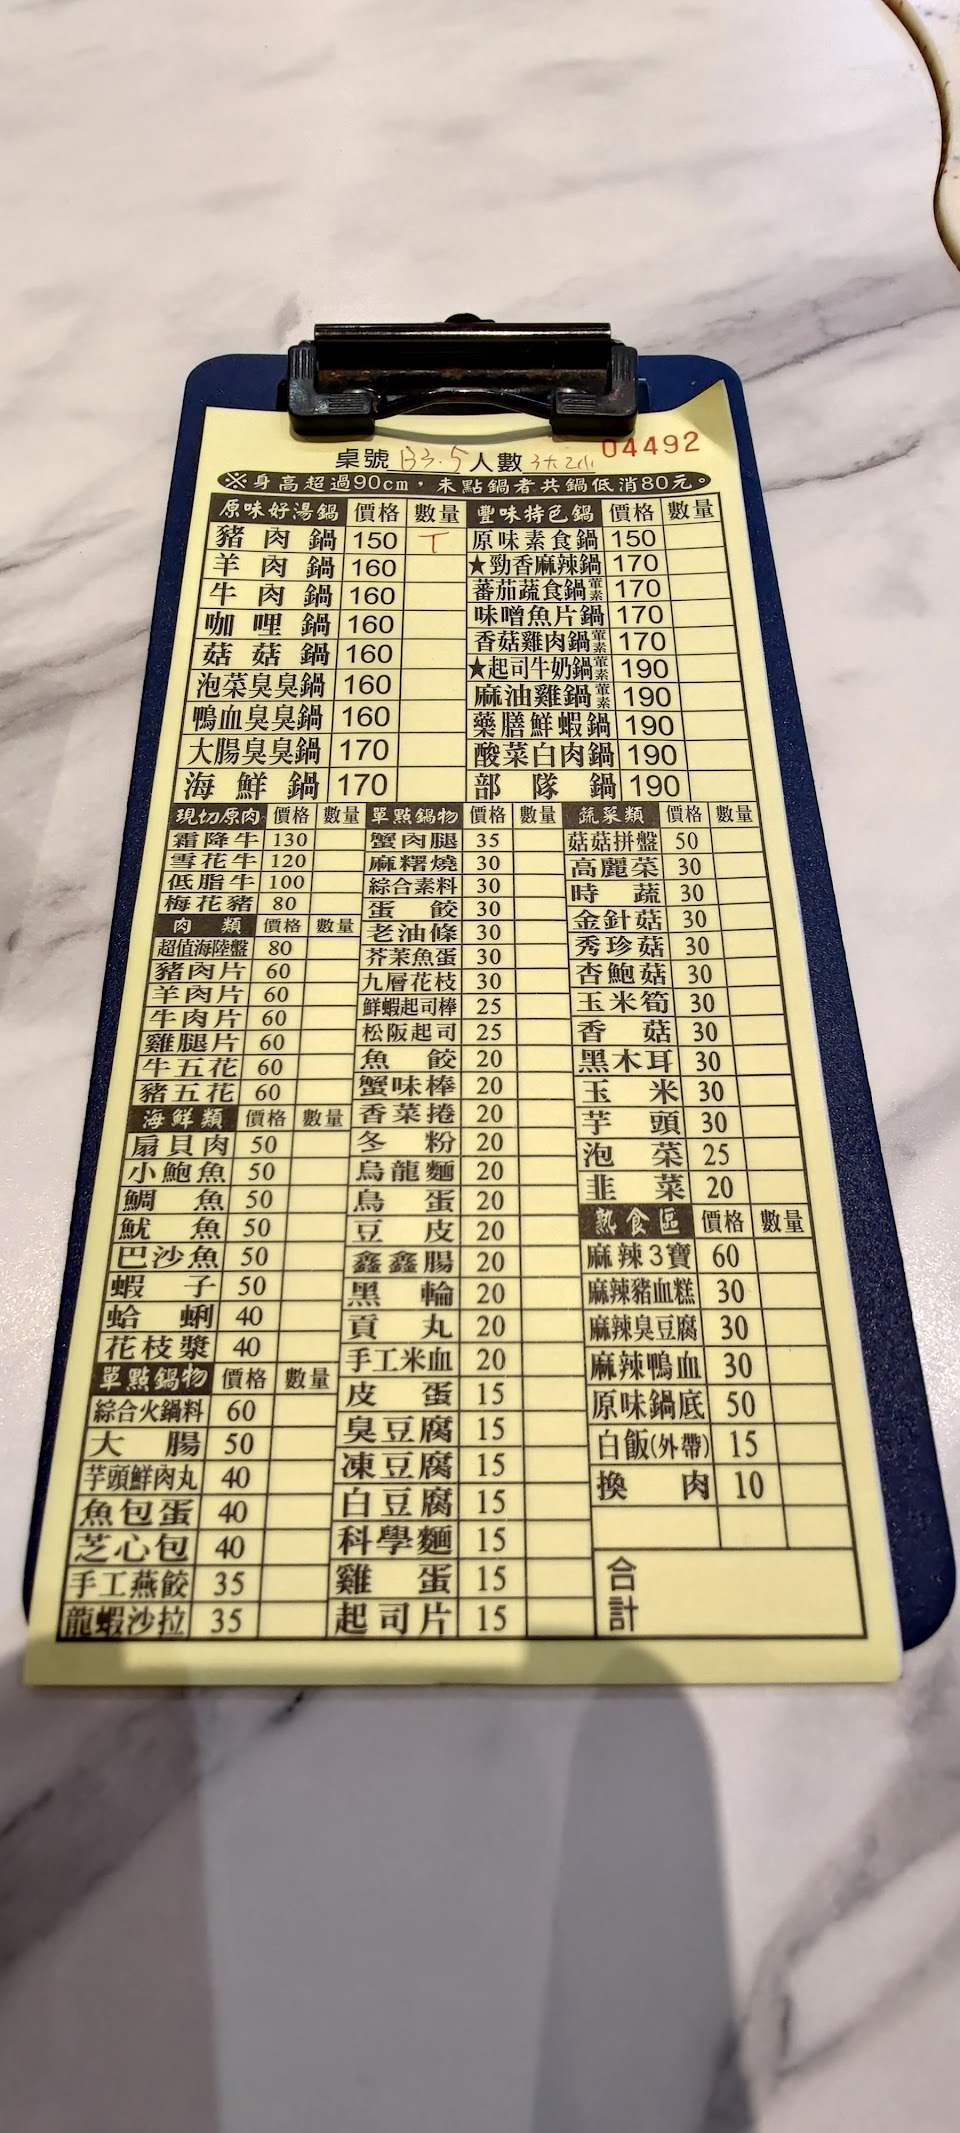 04492
桌號 B3.5 人數 3大2小
※身高超過90cm，未點鍋者共鍋低消80元。
原味好湯鍋 價格 數量
豬肉鍋 150 T
羊肉鍋 160
牛肉鍋 160
咖哩鍋 160
菇菇鍋 160
泡菜臭臭鍋 160
鴨血臭臭鍋 160
大腸臭臭鍋 170
海鮮鍋 170
豐味特色鍋 價格 數量
原味素食鍋 150
★勁香麻辣鍋 170
蕃茄蔬食鍋 葷素 170
味噌魚片鍋 170
香菇雞肉鍋 葷素 170
★起司牛奶鍋 葷素 190
麻油雞鍋 葷素 190
藥膳鮮蝦鍋 190
酸菜白肉鍋 190
部隊鍋 190
現切原肉 價格 數量
霜降牛 130
雪花牛 120
低脂牛 100
梅花豬 80
肉類 價格 數量
超值海陸盤 80
豬肉片 60
羊肉片 60
牛肉片 60
雞腿片 60
牛五花 60
豬五花 60
海鮮類 價格 數量
扇貝肉 50
小鮑魚 50
鯛魚 50
魷魚 50
巴沙魚 50
蝦子 50
蛤蜊 40
花枝漿 40
單點鍋物 價格 數量
綜合火鍋料 60
大腸 50
芋頭鮮肉丸 40
魚包蛋 40
芝心包 40
手工燕餃 35
龍蝦沙拉 35
單點鍋物 價格 數量
蟹肉腿 35
麻糬燒 30
綜合素料 30
蛋餃 30
老油條 30
芥茉魚蛋 30
九層花枝 30
鮮蝦起司棒 25
松阪起司 25
魚餃 20
蟹味棒 20
香菜捲 20
冬粉 20
烏龍麵 20
鳥蛋 20
豆皮 20
鑫鑫腸 20
黑輪 20
貢丸 20
手工米血 20
皮蛋 15
臭豆腐 15
凍豆腐 15
白豆腐 15
科學麵 15
雞蛋 15
起司片 15
蔬菜類 價格 數量
菇菇拼盤 50
高麗菜 30
時蔬 30
金針菇 30
秀珍菇 30
杏鮑菇 30
玉米筍 30
香菇 30
黑木耳 30
玉米 30
芋頭 30
泡菜 25
韭菜 20
熟食區 價格 數量
麻辣3寶 60
麻辣豬血糕 30
麻辣臭豆腐 30
麻辣鴨血 30
原味鍋底 50
白飯(外帶) 15
換肉 10
合計